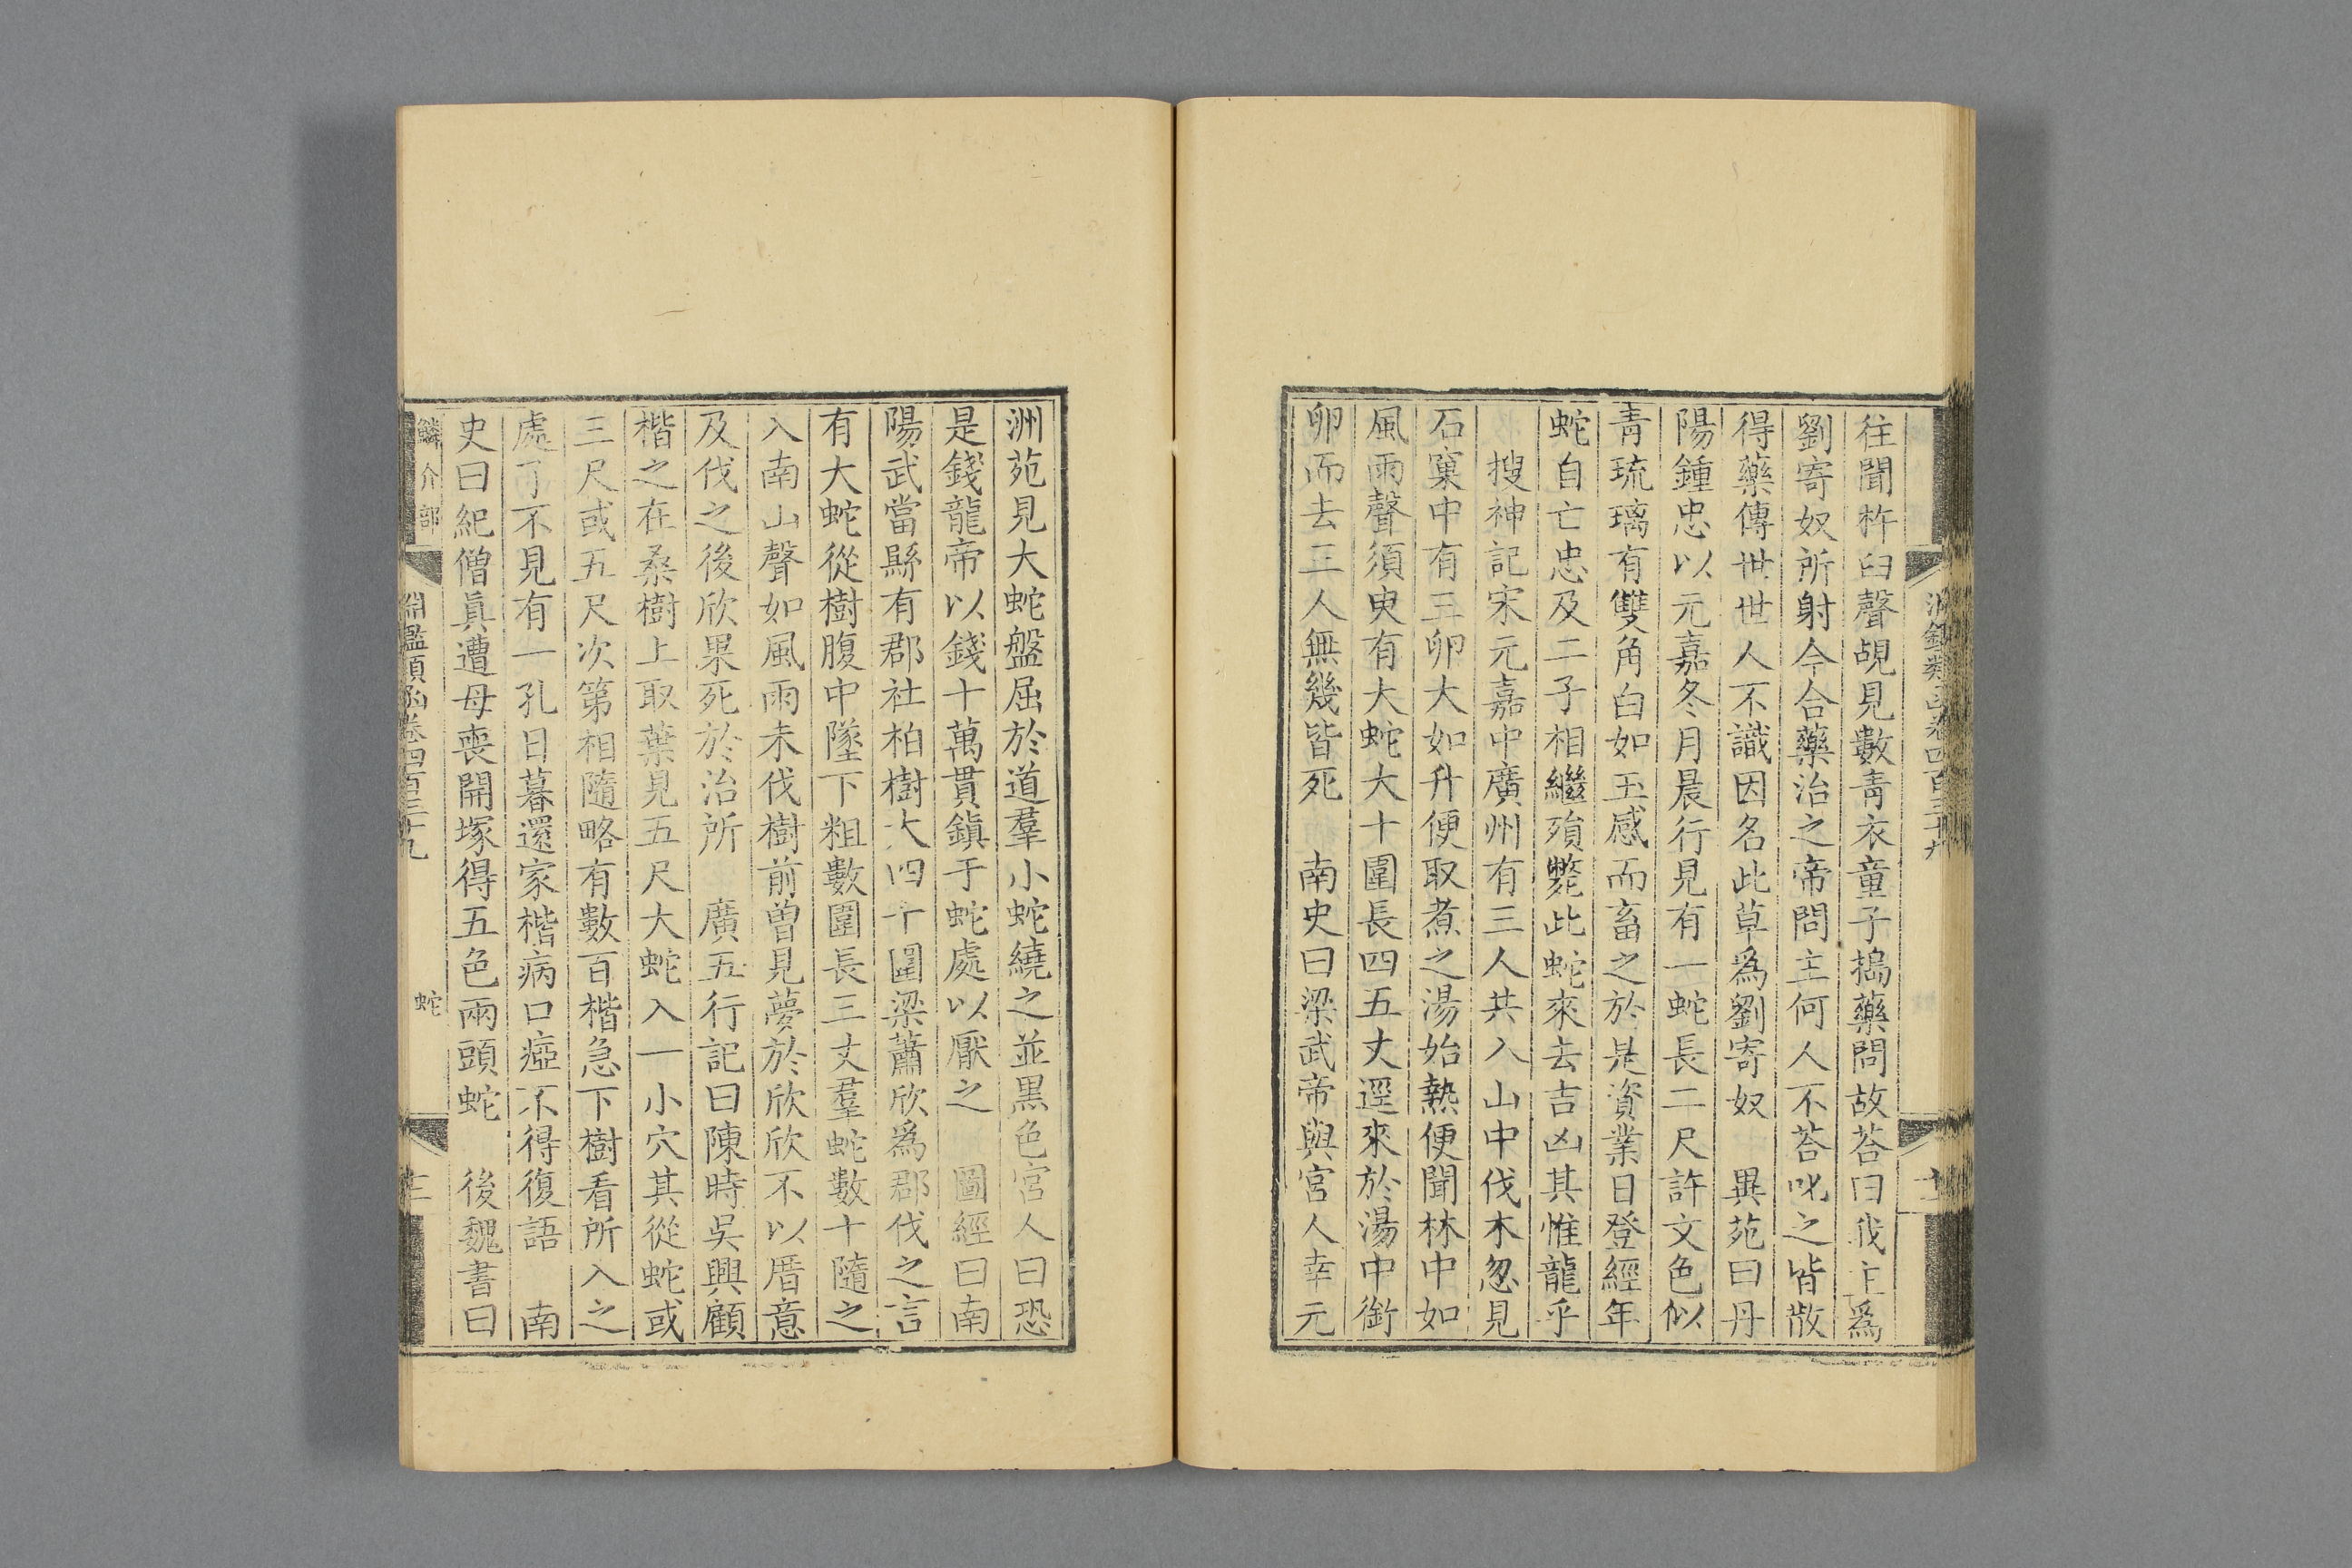 往聞杵臼聲覘見數青衣童子搗藥問故荅曰我主爲
劉寄奴所射今合藥治之帝問主何人不荅叱之皆散
得藥傳世世人不識因名此草爲劉寄奴　異苑曰丹
陽鍾忠以元嘉冬月晨行見有一蛇長二尺許文色似
青琉璃有雙角白如玉感而畜之於是資業日登經年
蛇自亡忠及二子相繼殞斃此蛇來去吉凶其惟龍乎
　搜神記宋元嘉中廣州有三人共入山中伐木忽見
石窠中有三卵大如升便取煮之湯始熱便聞林中如
風雨聲須臾有大蛇大十圍長四五丈逕來於湯中銜
卵而去三人無幾皆死　南史曰梁武帝與宮人幸元
洲苑見大蛇盤屈於道羣小蛇繞之並黑色宮人曰恐
是錢龍帝以錢十萬貫鎭于蛇處以厭之　圖經曰南
陽武當縣有郡社柏樹大四十圍梁蕭欣爲郡伐之言
有大蛇從樹腹中墜下粗數圍長三丈羣蛇數十隨之
入南山聲如風雨未伐樹前曾見夢於欣欣不以厝意
及伐之後欣果死於治所　廣五行記曰陳時吳興顧
楷之在桑樹上取葉見五尺大蛇入一小穴其從蛇或
三尺或五尺次第相隨略有數百楷急下樹看所入之
處了不見有一孔日暮還家楷病口瘂不得復語　南
史曰紀僧眞遭母喪開塚得五色兩頭蛇　後魏書曰
鱗介部
淵鑑類函卷四百三十九
蛇